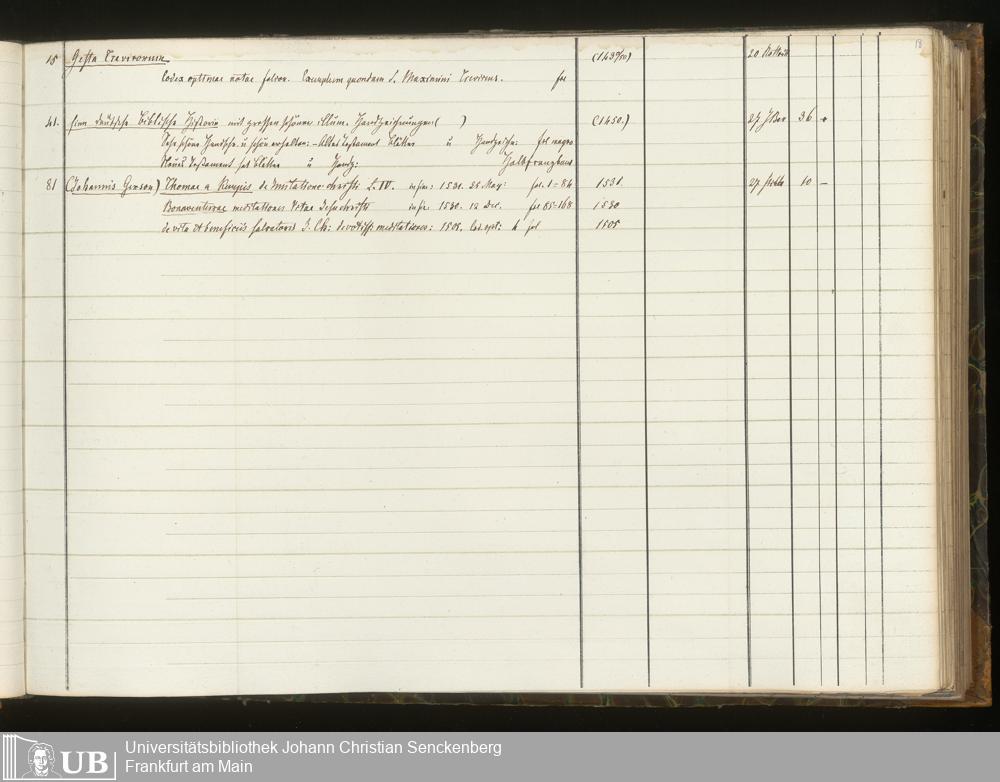 18
15 Gesta Trevirorum (1437/50) 20
Codex optimae notae folior. Exemplum quondam S. Maximini Trevirens. fol
41. Eine deutsche Biblische Historie mit grossen schönen illum. Handzeichnungen ( ) (1450.) 27 36
Sehr schöne Handschr. u schön erhalten: – Altes Testament Blätter u Handzeichn: fol
Neues Testament hat Blätter u Handz: Halbfranzband
81 (Johannis Gerson) Thomae a Kempis de Imitatione christi L. IV. in fin: 1531. 25 May: fol. 1–84 1531. 27 10 –
Bonaventurae meditationes Vitae Jesu christi in fin. 1530. 12 Dec. fol 85–168 1530
de vita et beneficiis salvatoris J. Ch: devotiss. meditationes: 1505. fol 1505
UB
Universitätsbibliothek Johann Christian Senckenberg
Frankfurt am Main